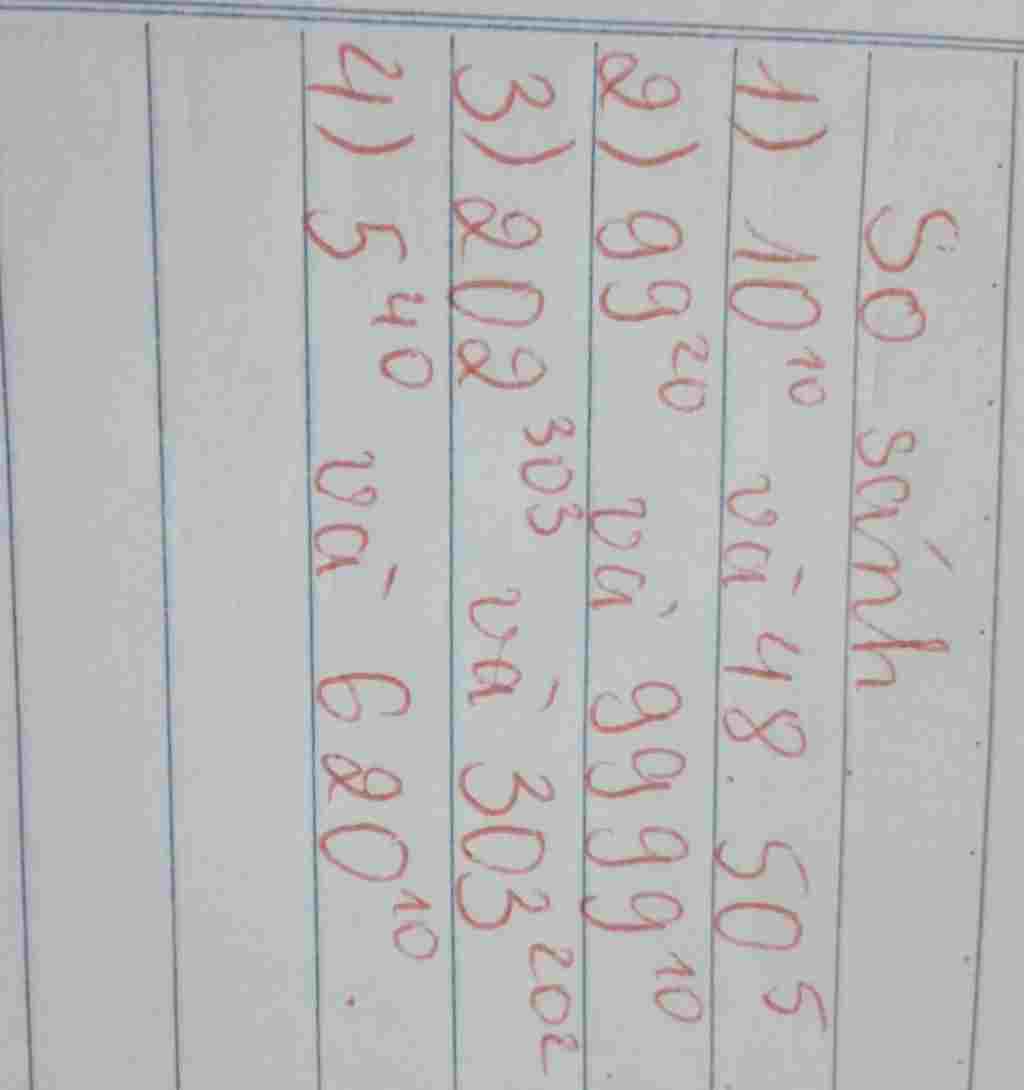 So sánh
1) 10¹⁰ và 48.50⁵
2) 99²⁰ và 9999¹⁰
3) 202³⁰³ và 303²⁰²
4) 5⁴⁰ và 620¹⁰.